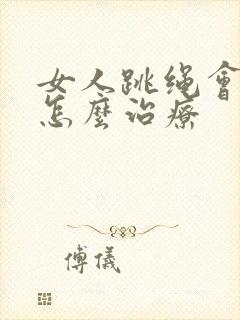 女人跳绳會
怎麼治療
傅儀